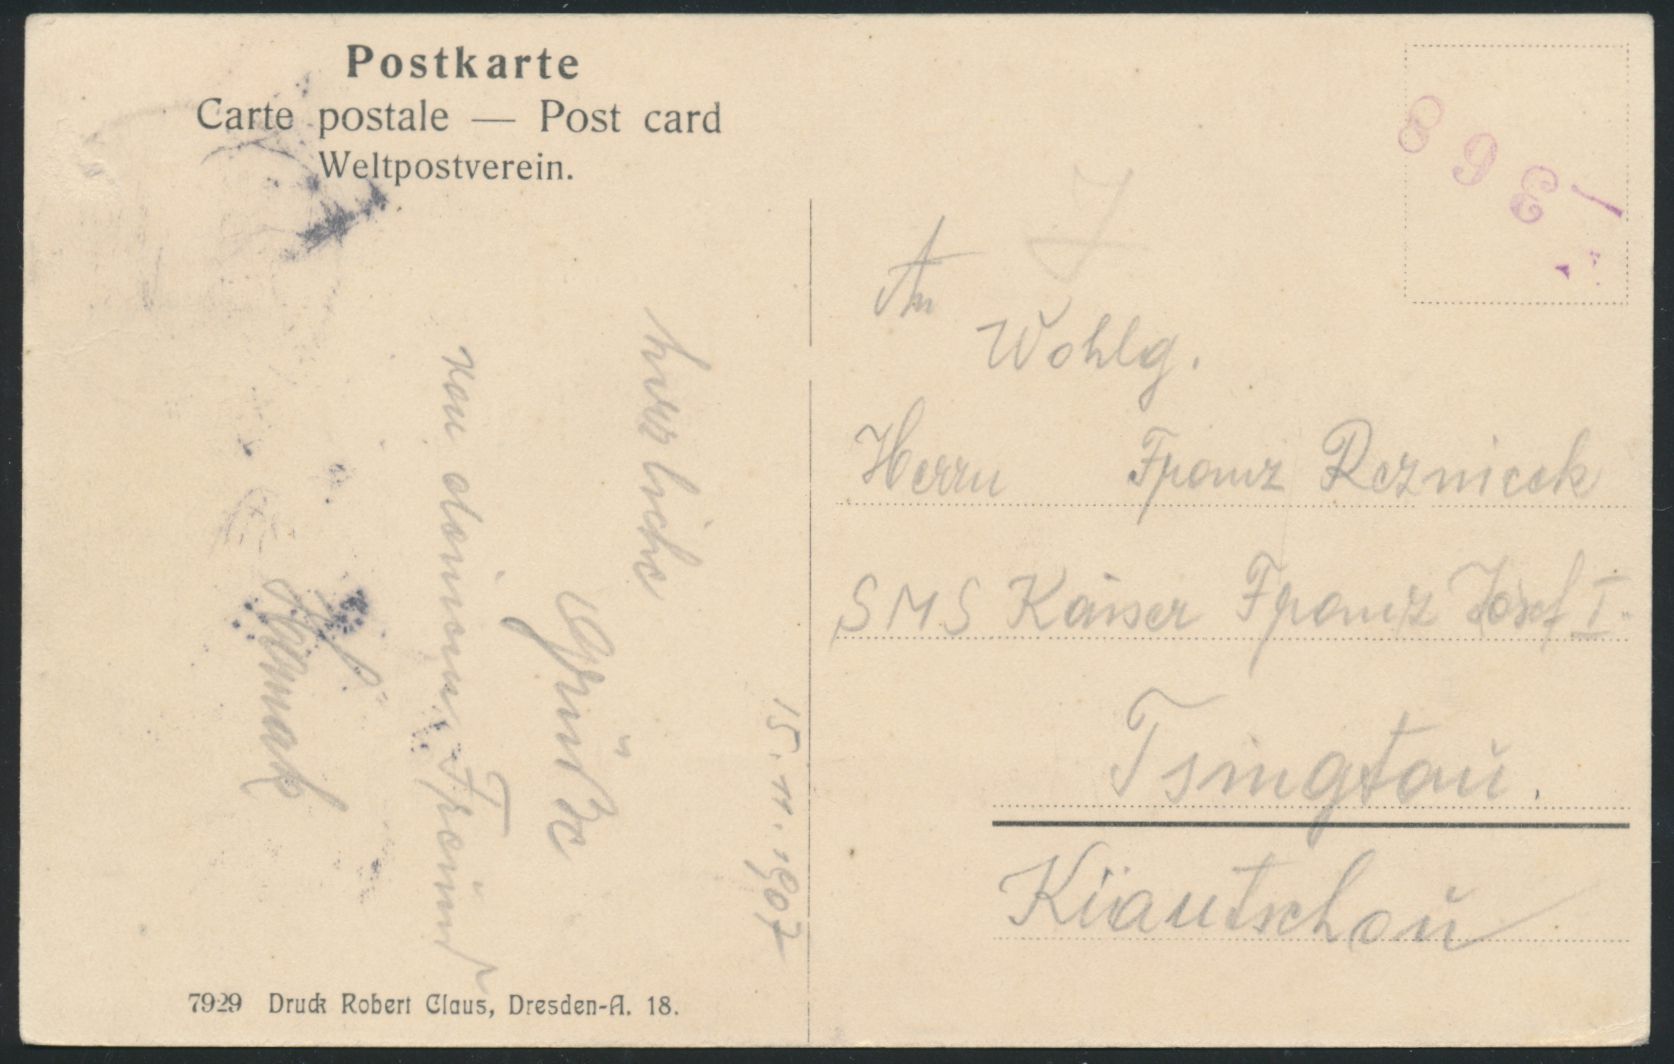 Postkarte
Carte postale — Post card
Weltpostverein.
herzliche
Grüße
von deinem Freund
15. 11. 1907
An
Wohlg.
Herrn Franz Reznicek
SMS Kaiser Franz Josef I.
Tsingtau.
Kiautschou
7929 Druck Robert Claus, Dresden-A. 18.